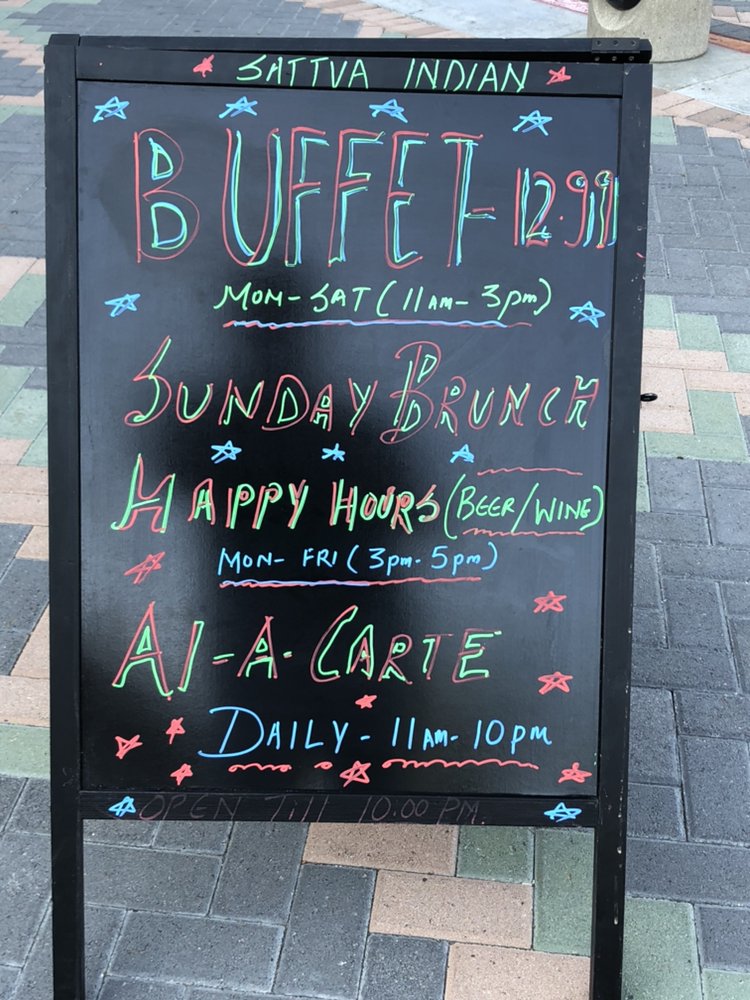 SATTVA INDIAN
BUFFET- 12.99
MON-SAT (11AM-3pm)
SUNDAY BRUNCH
HAPPY HOURS (BEER/WINE)
MON- FRI (3pm-5pm)
Al-A-CARTE
DAILY- 11AM-10pm
OPEN Till 10:00 PM.